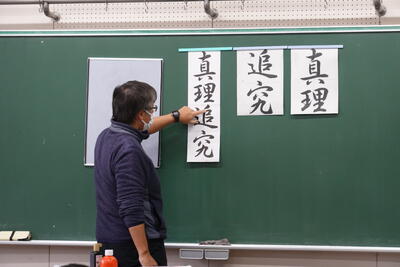 真理追究
追究
真理